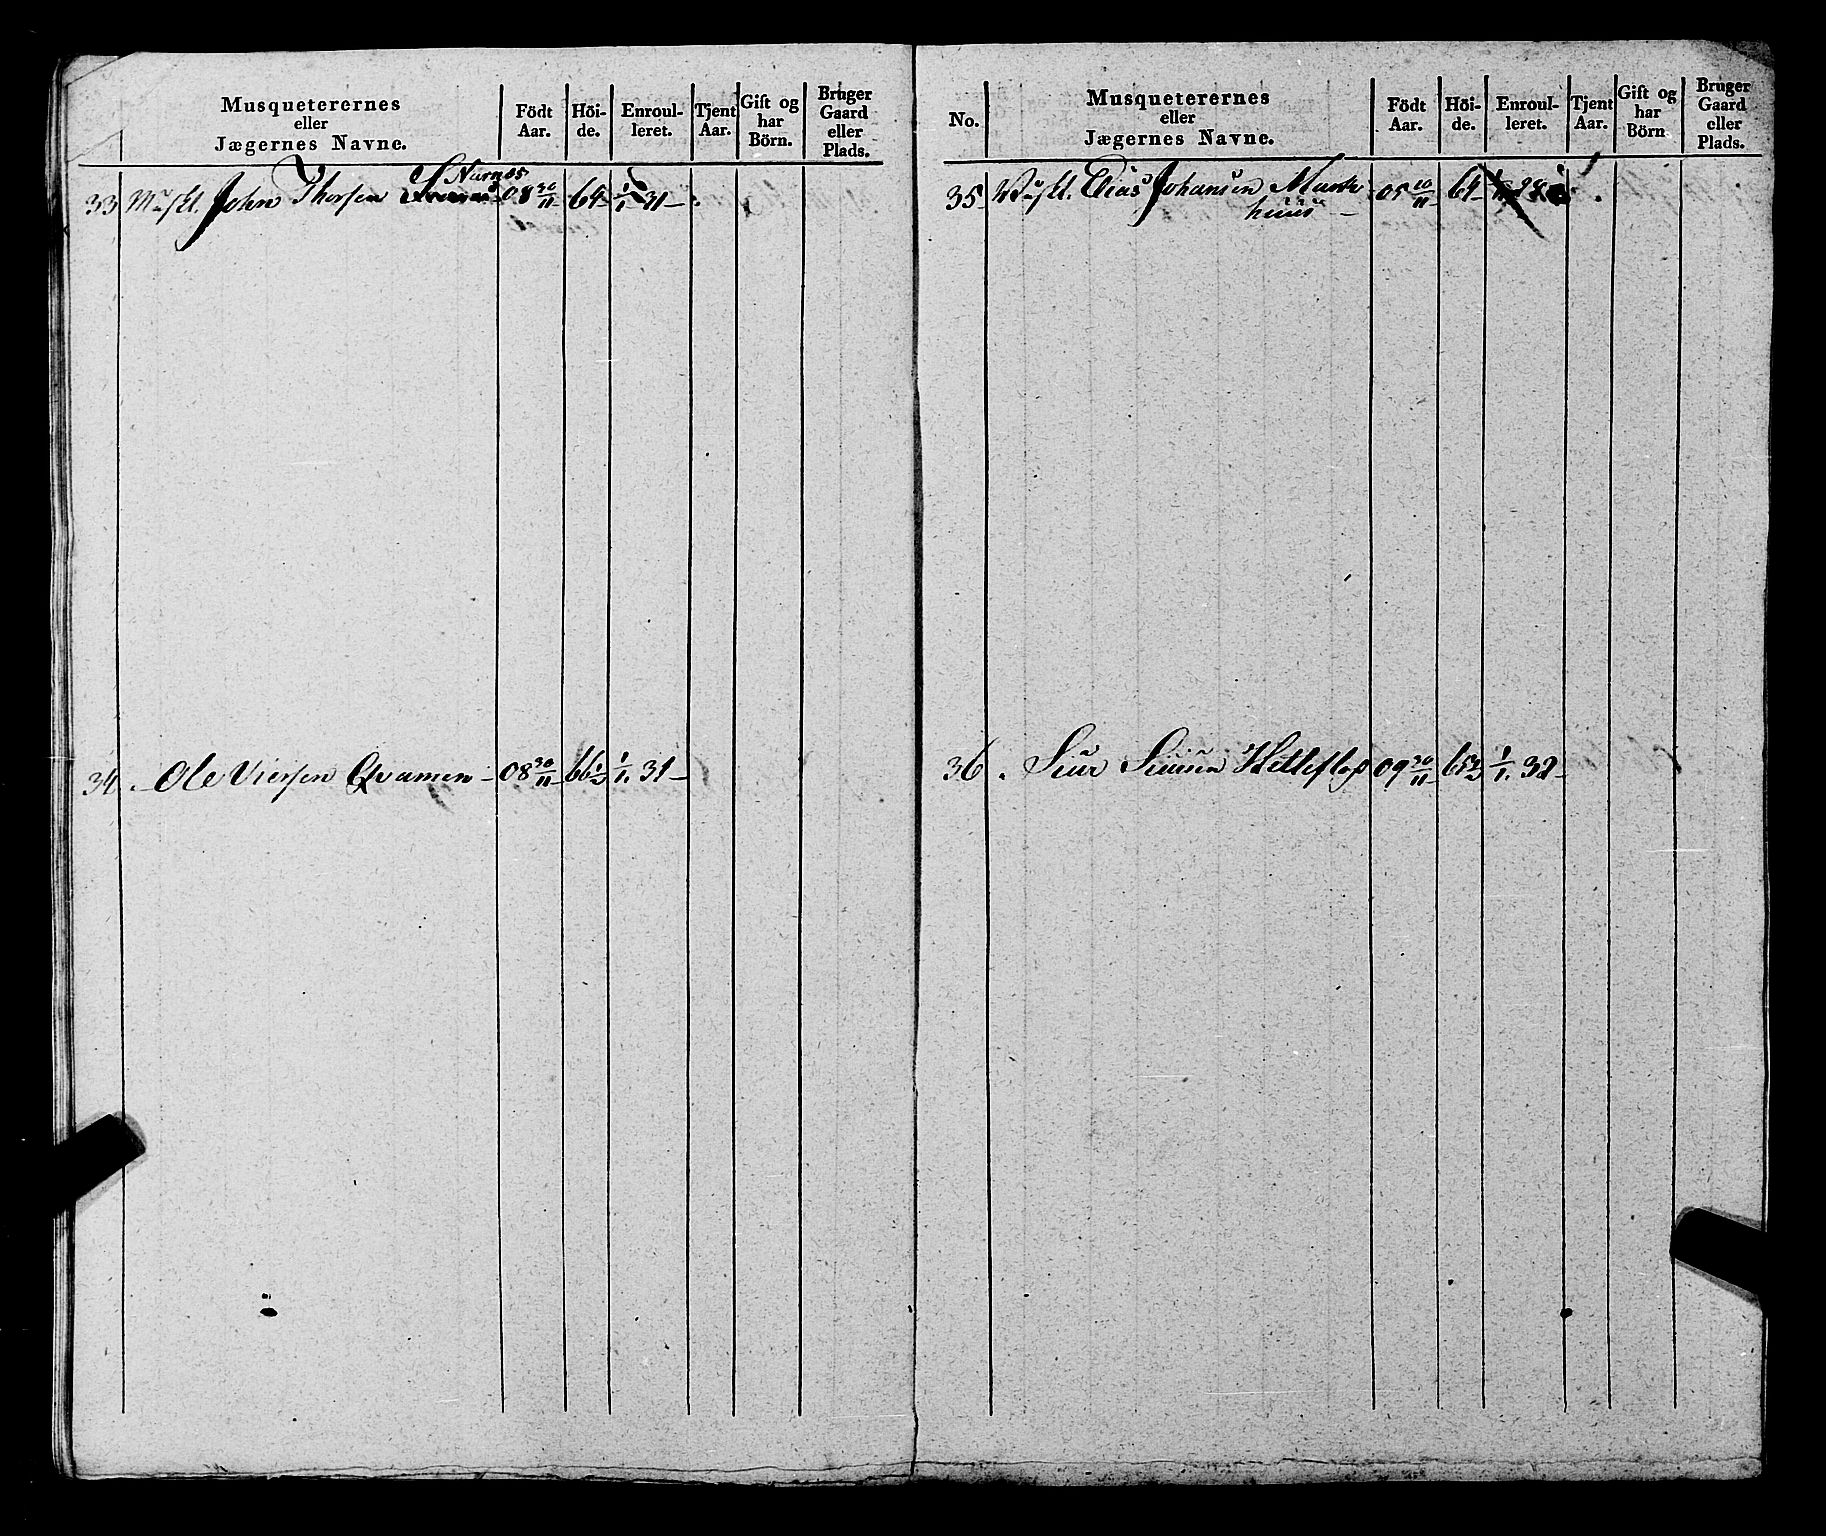 Musqueterernes
eller
Jægernes Navne.
Födt Aar.
Höi- de.
Enroul- leret.
Tjent Aar.
Gift og har Börn.
Bruger Gaard eller Plads.
33 Muskt. John Thorsen 08 30/11 64 1/1 31
34 Ole Viersen Qvamen 08 30/11 66 1/2 1/1 31
No.
Musqueterernes
eller
Jægernes Navne.
Födt Aar.
Höi- de.
Enroul- leret.
Tjent Aar.
Gift og har Börn
Bruger Gaard eller Plads.
35 Muskt. Elias Johansen Mark
huus
05 64
36 Siur 09 30/11 65 1/1 32